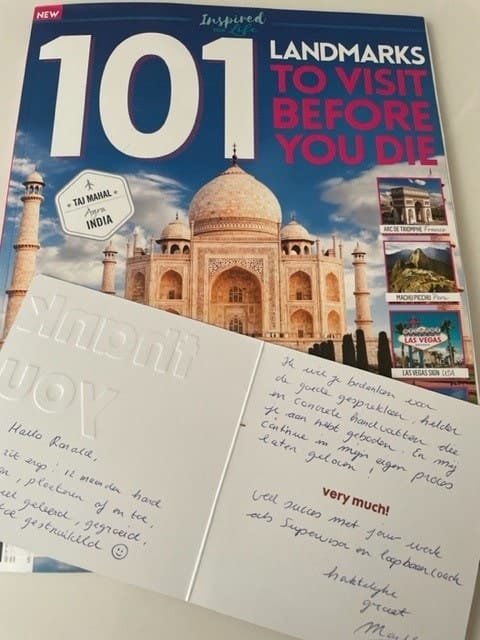 NEW
Inspired
FOR Life
101
LANDMARKS
TO VISIT
BEFORE
YOU DIE
TAJ MAHAL
Agra
INDIA
ARC DE TRIOMPHE France
MACHU PICCHU Peru
LAS VEGAS
LAS VEGAS SIGN USA
Thank
You
Hallo Ronald,
zit erop! 12 maanden hard
en, ploeteren af en toe,
geleerd, gegroeid,
gestruikeld ☺
Ik wil je bedanken voor
de goede gesprekken, helder
en concrete handvatten die
je aan hebt geboden. En mij
continue in mijn eigen proces
laten geloven!
very much!
Veel succes met jouw werk
als Supervisor en loopbaancoach
hartelijke
groet